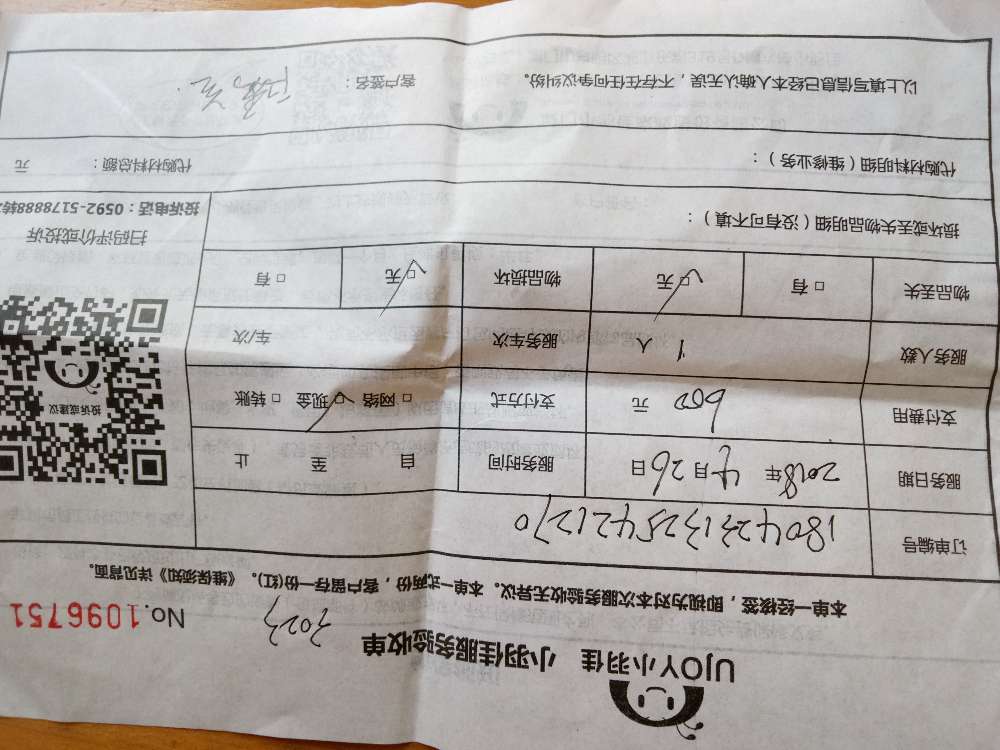 UJOY小羽佳 小羽佳服务验收单
No.1096751
本单一经核签，即视为对本次服务验收无异议。本单一式两份，客户留存一份(红)。《维保须知》详见背面。
订单编号 18042313254421270
服务日期 2018年4月26日 服务时间 自 至 止
支付费用 600元 支付方式 □网络 ☑现金 □转账
服务人数 1人 服务车次 车/次
物品丢失 □有 ☑无 物品损坏 ☑无 □有
投诉或建议
扫码评价或投诉
投诉电话：0592-5178888转
损坏或丢失物品明细（没有可不填）：
代购材料明细（维修业务）： 代购材料总额： 元
以上填写信息已经本人确认无误，不存在任何争议纠纷。 客户签名：